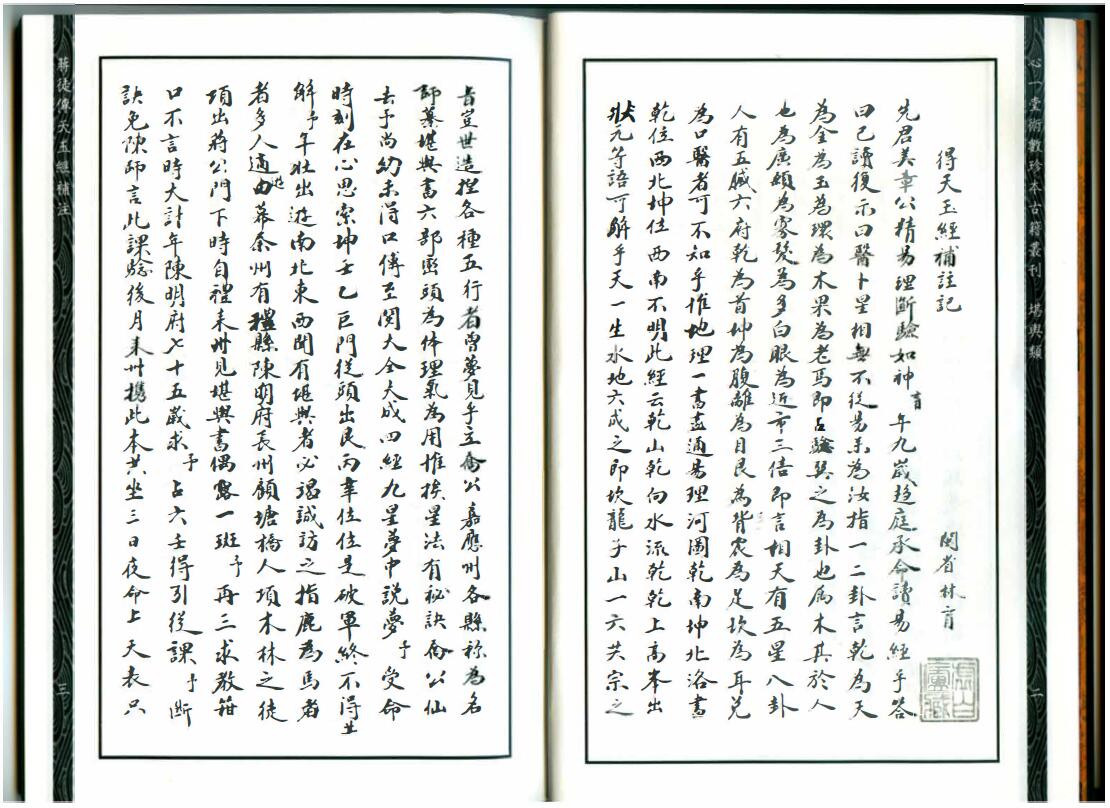 心一堂術數珍本古籍叢刊 堪輿類
二
得天玉經補註記
閩省林育
先君美章公精易理斷驗如神育年九歲趋庭承命讀易經乎答
曰已讀復示曰醫卜星相無不從易系為汝指一二卦言乾為天
為金為玉為環為木果為老馬即占驗巽之為卦也属木其於人
也為廣顙為寡髮為多白眼為近市三倍即言相天有五星八卦
人有五臟六府乾為首坤為腹離為目艮為背震為足坎為耳兌
為口醫者可不知乎惟地理一書盖通易理河圖乾南坤北洛書
乾位西北坤位西南不明此經云乾山乾向水流乾乾上高峯出
狀元等語可解乎天一生水地六成之即坎龍子山一六共宗之
旨豈世造捏各種五行者曾夢見乎立喬公嘉應州各縣稱為名
師纂堪輿書六部巒頭為体理氣為用推挨星法有秘訣喬公仙
去予尚幼未得口傳至閱大全大成四經九星夢中説夢予受命
時刻在心思索坤壬乙巨門從頭出艮丙辛位位是破軍終不得其
解予年壯出遊南北東西聞有堪輿者必竭誠訪之指鹿為馬者
者多人適遊幕泰州有禮縣陳明府長州顧塘橋人項木林之徒
項出蔣公門下時自禮来州見堪輿書偶露一斑予再三求教箝
口不言時大計年陳明府七十五歲求予占六壬得引從課予断
訣免陳師言此課驗後月来州携此本共坐三日夜命上天表只
蔣徒傳天玉經補注
三